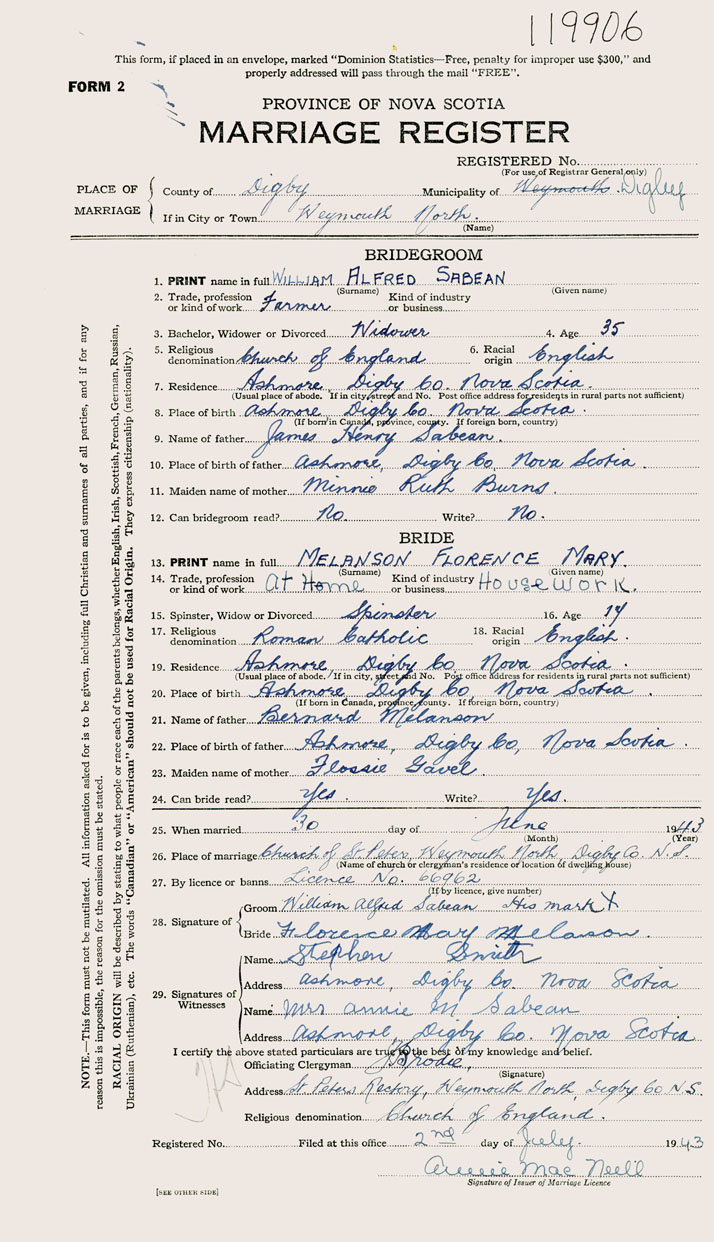 119906
This form, if placed in an envelope, marked “Dominion Statistics—Free, penalty for improper use $300,” and
properly addressed will pass through the mail “FREE”.
FORM 2
PROVINCE OF NOVA SCOTIA
MARRIAGE REGISTER
REGISTERED No.
(For use of Registrar General only)
PLACE OF MARRIAGE
County of Digby Municipality of Weymouth Digby
If in City or Town Weymouth North.
(Name)
BRIDEGROOM
1. PRINT name in full WILLIAM ALFRED SABEAN
(Surname) (Given name)
2. Trade, profession or kind of work Farmer Kind of industry or business
3. Bachelor, Widower or Divorced Widower 4. Age 35
5. Religious denomination Church of England 6. Racial origin English
7. Residence Ashmore, Digby Co. Nova Scotia.
(Usual place of abode. If in city, street and No. Post office address for residents in rural parts not sufficient)
8. Place of birth Ashmore, Digby Co. Nova Scotia.
(If born in Canada, province, county. If foreign born, country)
9. Name of father James Henry Sabean.
10. Place of birth of father Ashmore, Digby Co, Nova Scotia.
11. Maiden name of mother Minnie Ruth Burns.
12. Can bridegroom read? No. Write? No.
BRIDE
13. PRINT name in full MELANSON FLORENCE MARY.
(Surname) (Given name)
14. Trade, profession or kind of work At Home Kind of industry or business Housework.
15. Spinster, Widow or Divorced Spinster 16. Age
17. Religious denomination Roman Catholic 18. Racial origin English.
19. Residence Ashmore, Digby Co, Nova Scotia.
(Usual place of abode. If in city, street and No. Post office address for residents in rural parts not sufficient)
20. Place of birth Ashmore, Digby Co, Nova Scotia.
(If born in Canada, province, county. If foreign born, country)
21. Name of father Bernard Melanson
22. Place of birth of father Ashmore, Digby Co, Nova Scotia.
23. Maiden name of mother Flossie Gavel.
24. Can bride read? Yes. Write? Yes.
25. When married 30 day of June 1943
(Month) (Year)
26. Place of marriage Church of St Peter, Weymouth North, Digby Co. N.S.
(Name of church or clergyman's residence or location of dwelling house)
27. By licence or banns Licence No. 66962
(If by licence, give number)
28. Signature of
Groom William Alfred Sabean His mark X
Bride Florence Mary Melanson.
29. Signatures of Witnesses
Name Stephen Smith
Address Ashmore, Digby Co. Nova Scotia
Name Mrs Annie M Sabean
Address Ashmore, Digby Co. Nova Scotia
I certify the above stated particulars are true to the best of my knowledge and belief.
Officiating Clergyman Brodie,
(Signature)
Address St Peters Rectory, Weymouth North, Digby Co N.S.
Religious denomination Church of England.
Registered No. Filed at this office 2nd day of July 1943
Annie Mac Neill
Signature of Issuer of Marriage Licence
[SEE OTHER SIDE]
NOTE.—This form must not be mutilated. All information asked for is to be given, including full Christian and surnames of all parties, and if for any
reason this is impossible, the reason for the omission must be stated.
RACIAL ORIGIN will be described by stating to what people or race each of the parents belongs, whether English, Irish, Scottish, French, German, Russian,
Ukrainian (Ruthenian), etc. The words “Canadian” or “American” should not be used for Racial Origin. They express citizenship (nationality).